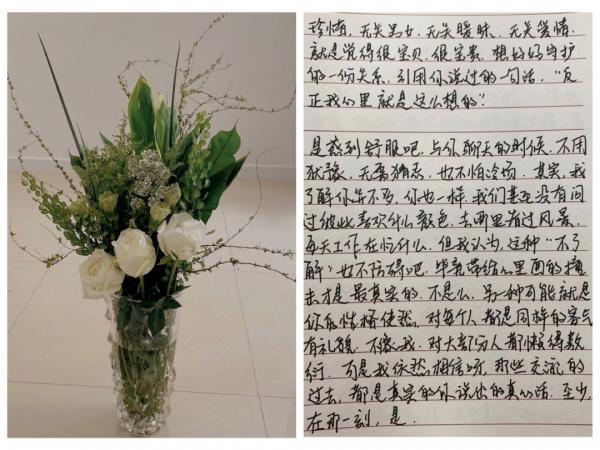 珍惜，无关男女，无关暧昧，无关爱情，
就是觉得很宝贝，很宝贵，想好好守护
的一份关系，引用你说过的一句话，“反
正我心里就是这么想的”
是感到舒服吧，与你聊天的时候，不用
犹豫，无需猜忌，也不怕冷场，其实，我
了解你并不多，你也一样，我们甚至没有问
过彼此喜欢什么颜色，去哪里看过风景，
每天工作在忙什么，但我认为，这种“不了
解”也不防碍吧，毕竟带给心里面的撞
击才是最真实的，不是么，另一种可能就是
你的性格使然，对每个人都是同样的客气
有礼貌，不像我，对大部分人都懒得敷
衍，可是我依然相信呀，那些交流的
过去，都是真实的你说出的真心话，至少，
在那一刻，是.